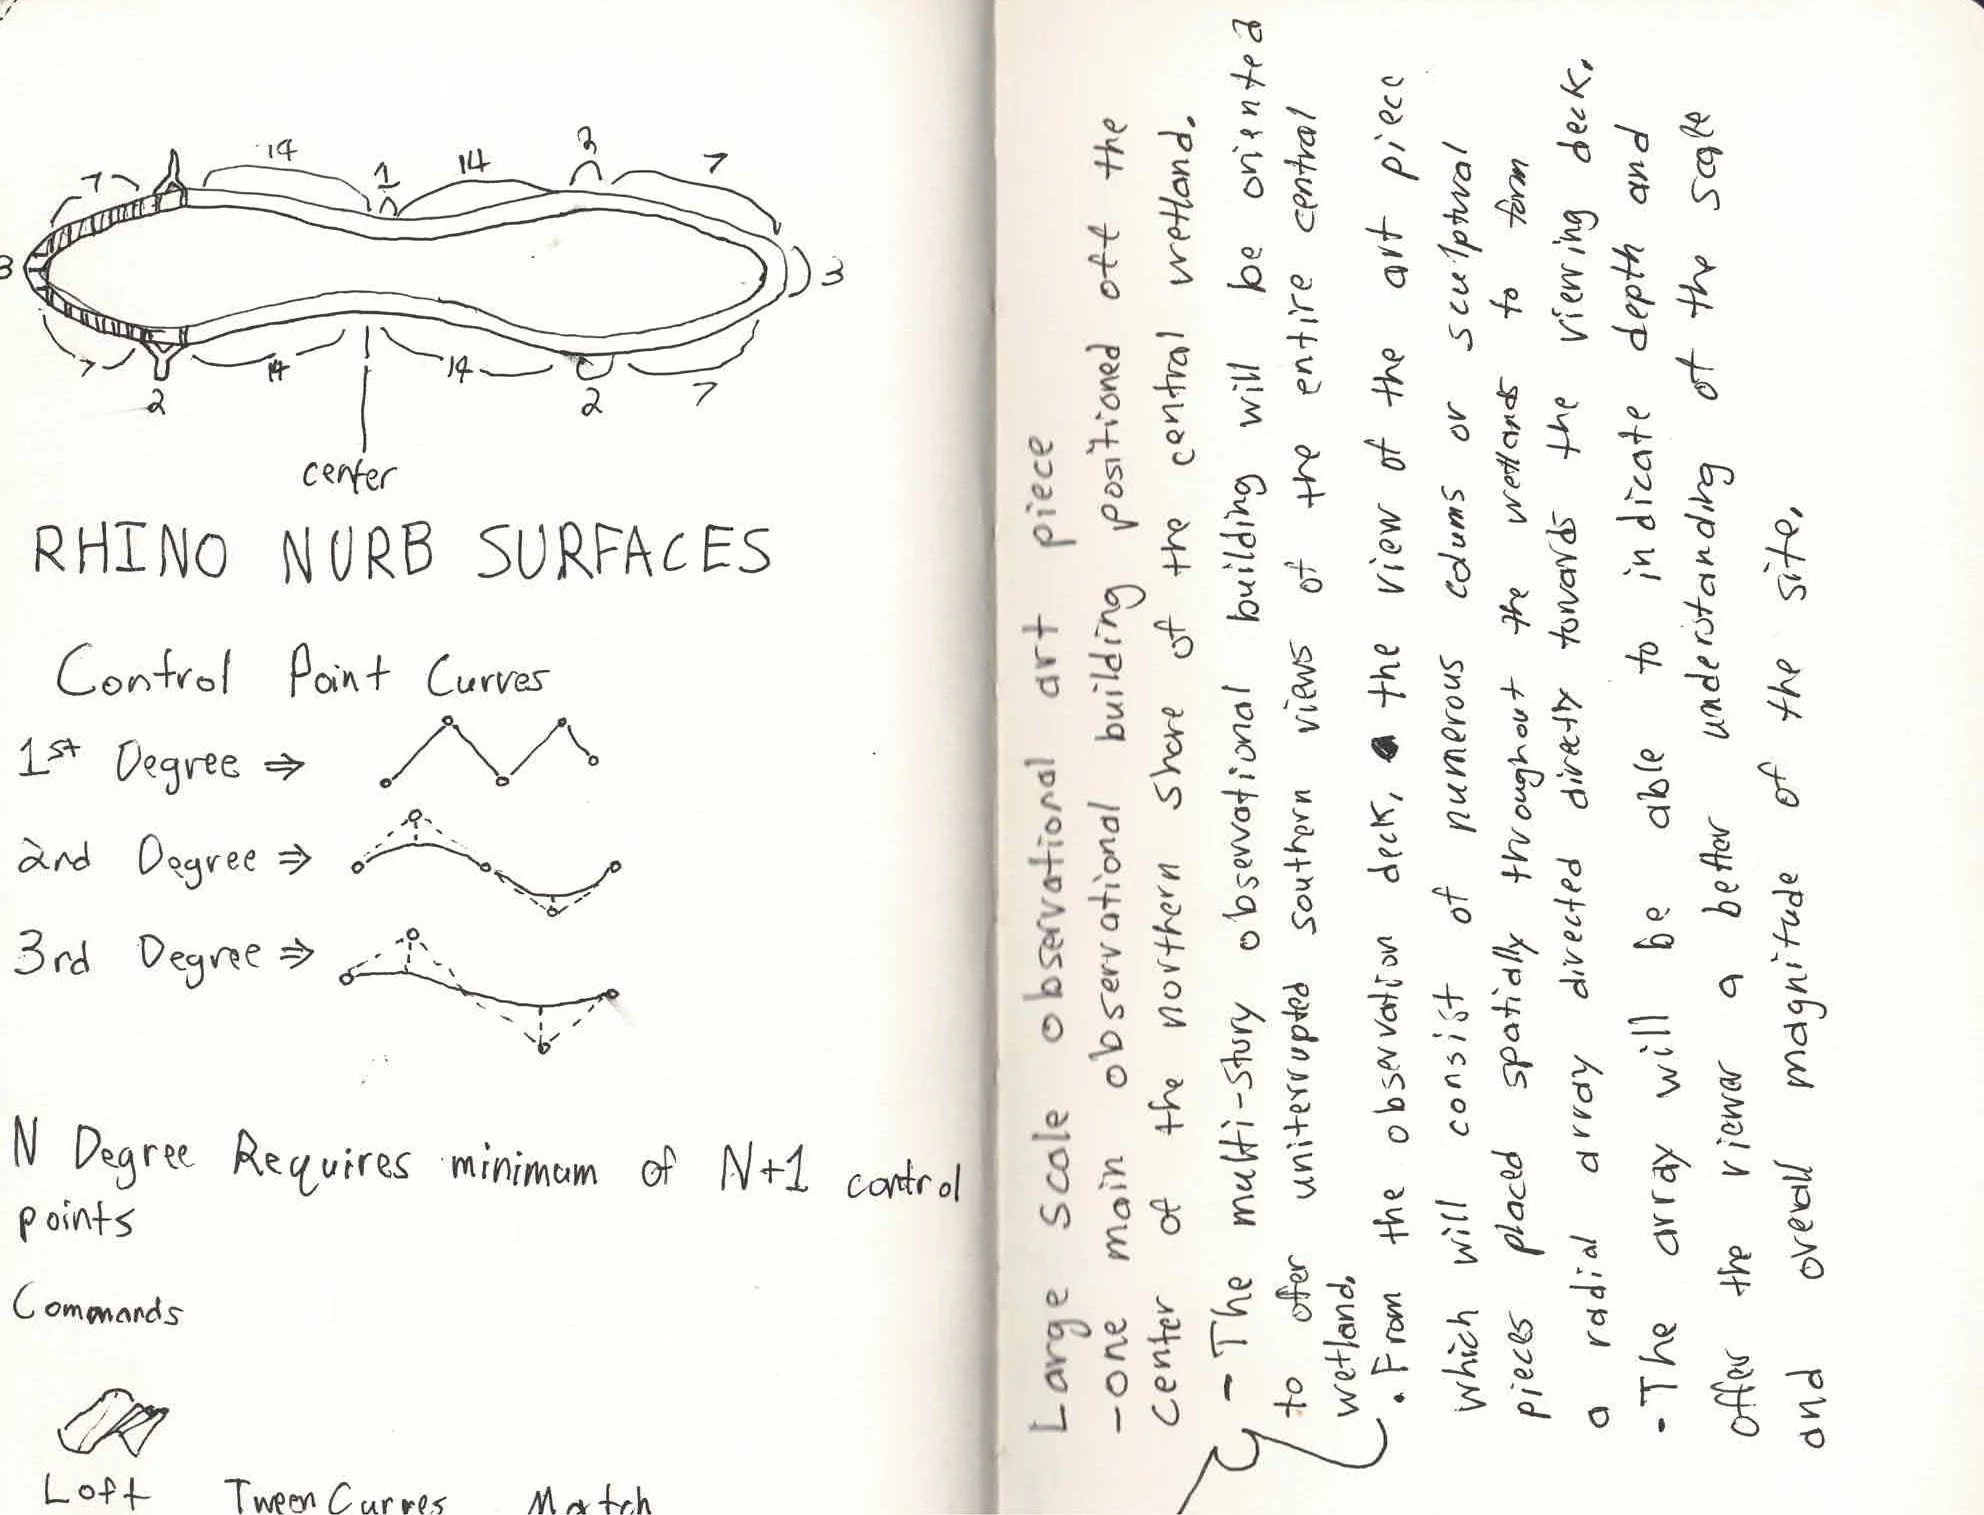 7
14
1
14
2
7
3
3
7
14
14
7
2
2
center
RHINO NURB SURFACES
Control Point Curves
1st Degree ⇒
2nd Degree ⇒
3rd Degree ⇒
N Degree Requires minimum of N+1 control
points
Commands
Loft TweenCurves Match
Large scale observational art piece
- one main observational building positioned off the
center of the northern shore of the central wetland.
- The multi-story observational building will be oriented
to offer uniterrupted southern views of the entire central
wetland.
. From the observation deck, the view of the art piece
which will consist of numerous colums or sculptural
pieces placed spatially throughout the wetlands to form
a radial array directed directly towards the viewing deck.
- The array will be able to indicate depth and
offer the viewer a better understanding of the scale
and overall magnitude of the site.